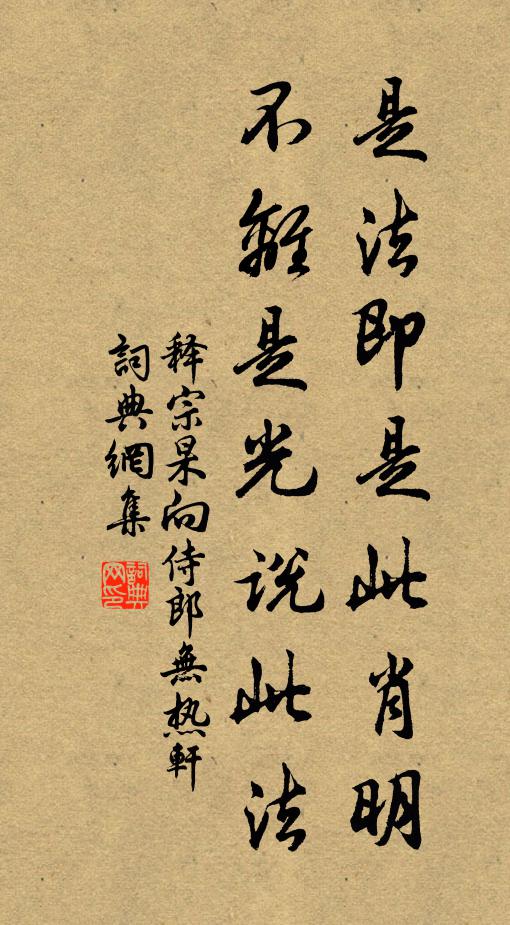 是法即是此肖明
不離是光説此法
释宗杲向侍郎無热軒
詞典網集
詞典
网印